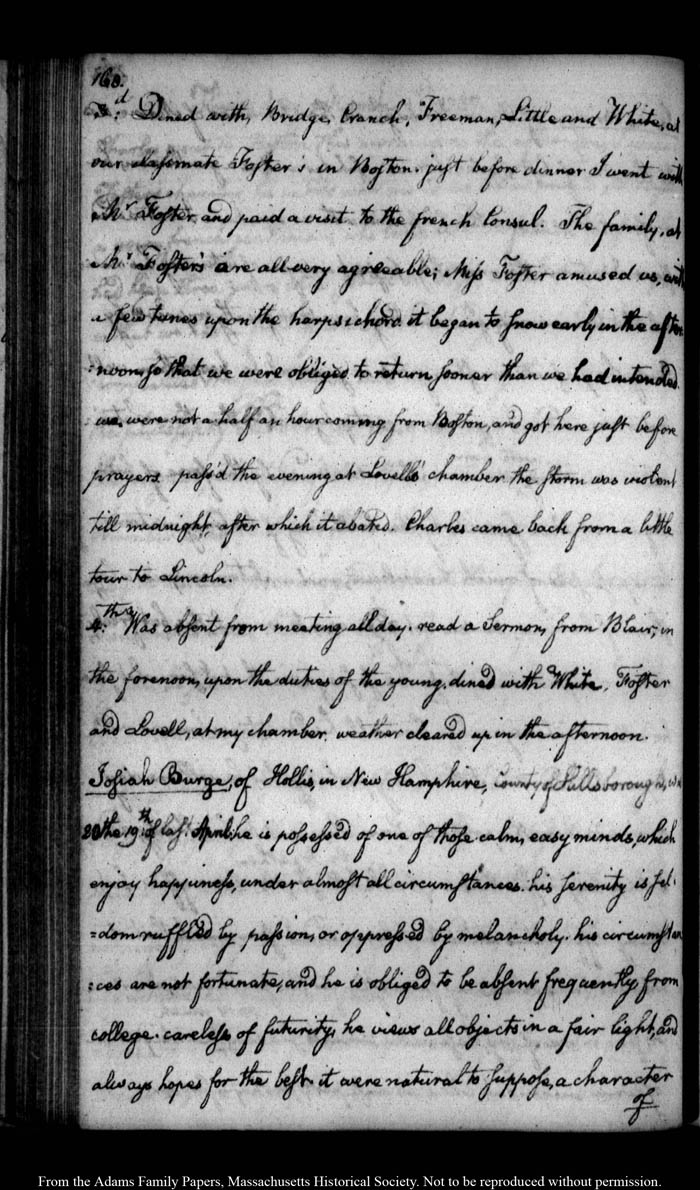 160.
3.d Dined with, Bridge, Cranch, Freeman, Little and White, at
our classmate Foster's in Boston. just before dinner I went with
Mr. Foster, and paid a visit to the french Consul. The family, at
Mr. Foster's are all very agreeable; Miss Foster amused us, with
a few tunes upon the harpsichord. it began to snow early in the after
=noon, so that we were obliged to return, sooner than we had intended.
we were not a half an hour coming from Boston, and got here just before
prayers. pass'd the evening at Lovell's chamber. the storm was violent
till midnight, after which it abated. Charles came back from a little
tour to Lincoln.
4.th Was absent from meeting all day. read a Sermon, from Blair, in
the forenoon, upon the duties of the young. dined with White, Foster
and Lovell, at my chamber. weather cleared up in the afternoon.
Josiah Burge, of Hollis, in New Hampshire, County of Hillsborough, was
20 the 19th of last April. he is possessed of one of those calm, easy minds, which
enjoy happiness, under almost all circumstances. his serenity is sel-
=dom ruffled by passion, or oppressed by melancholy. his circumstan
=ces are not fortunate, and he is obliged to be absent frequently, from
college. careless of futurity, he views all objects in a fair light, and
always hopes for the best. it were natural to suppose, a character
of
From the Adams Family Papers, Massachusetts Historical Society. Not to be reproduced without permission.